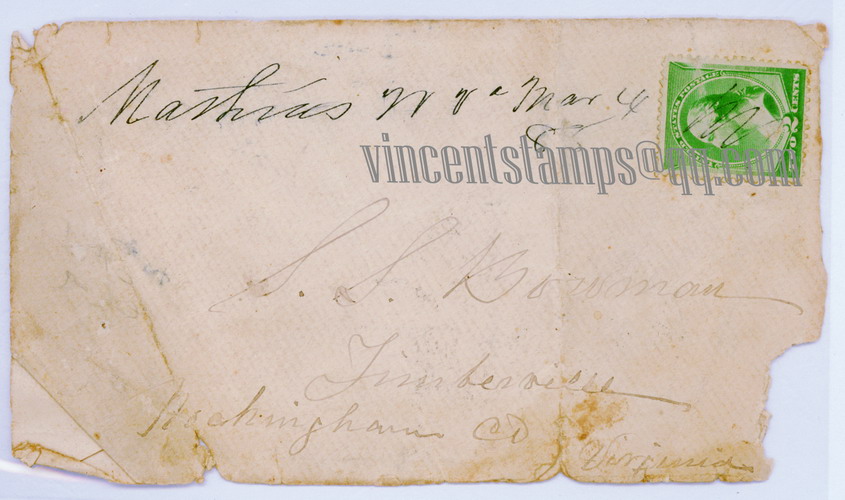 Mathias W Va Mar 4
UNITED STATES POSTAGE
2
CENTS
vincentstamps@qq.com
S. S. Bowman
Timberville
Rockingham Co
Virginia